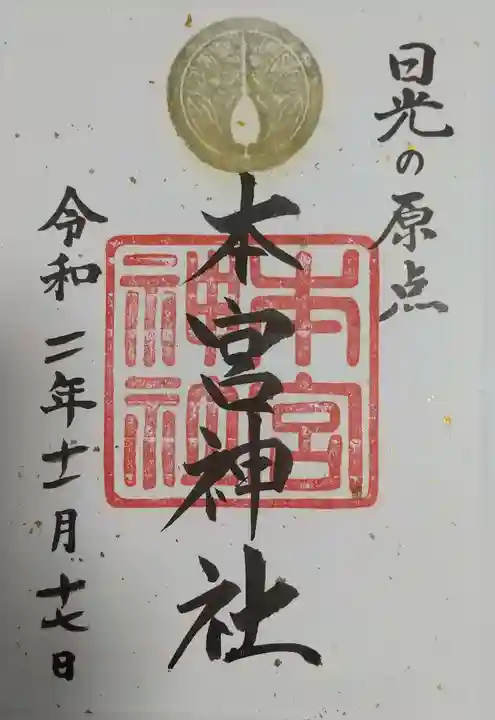 日光の原点
本宮神社
令和二年十一月十七日
本宮神社